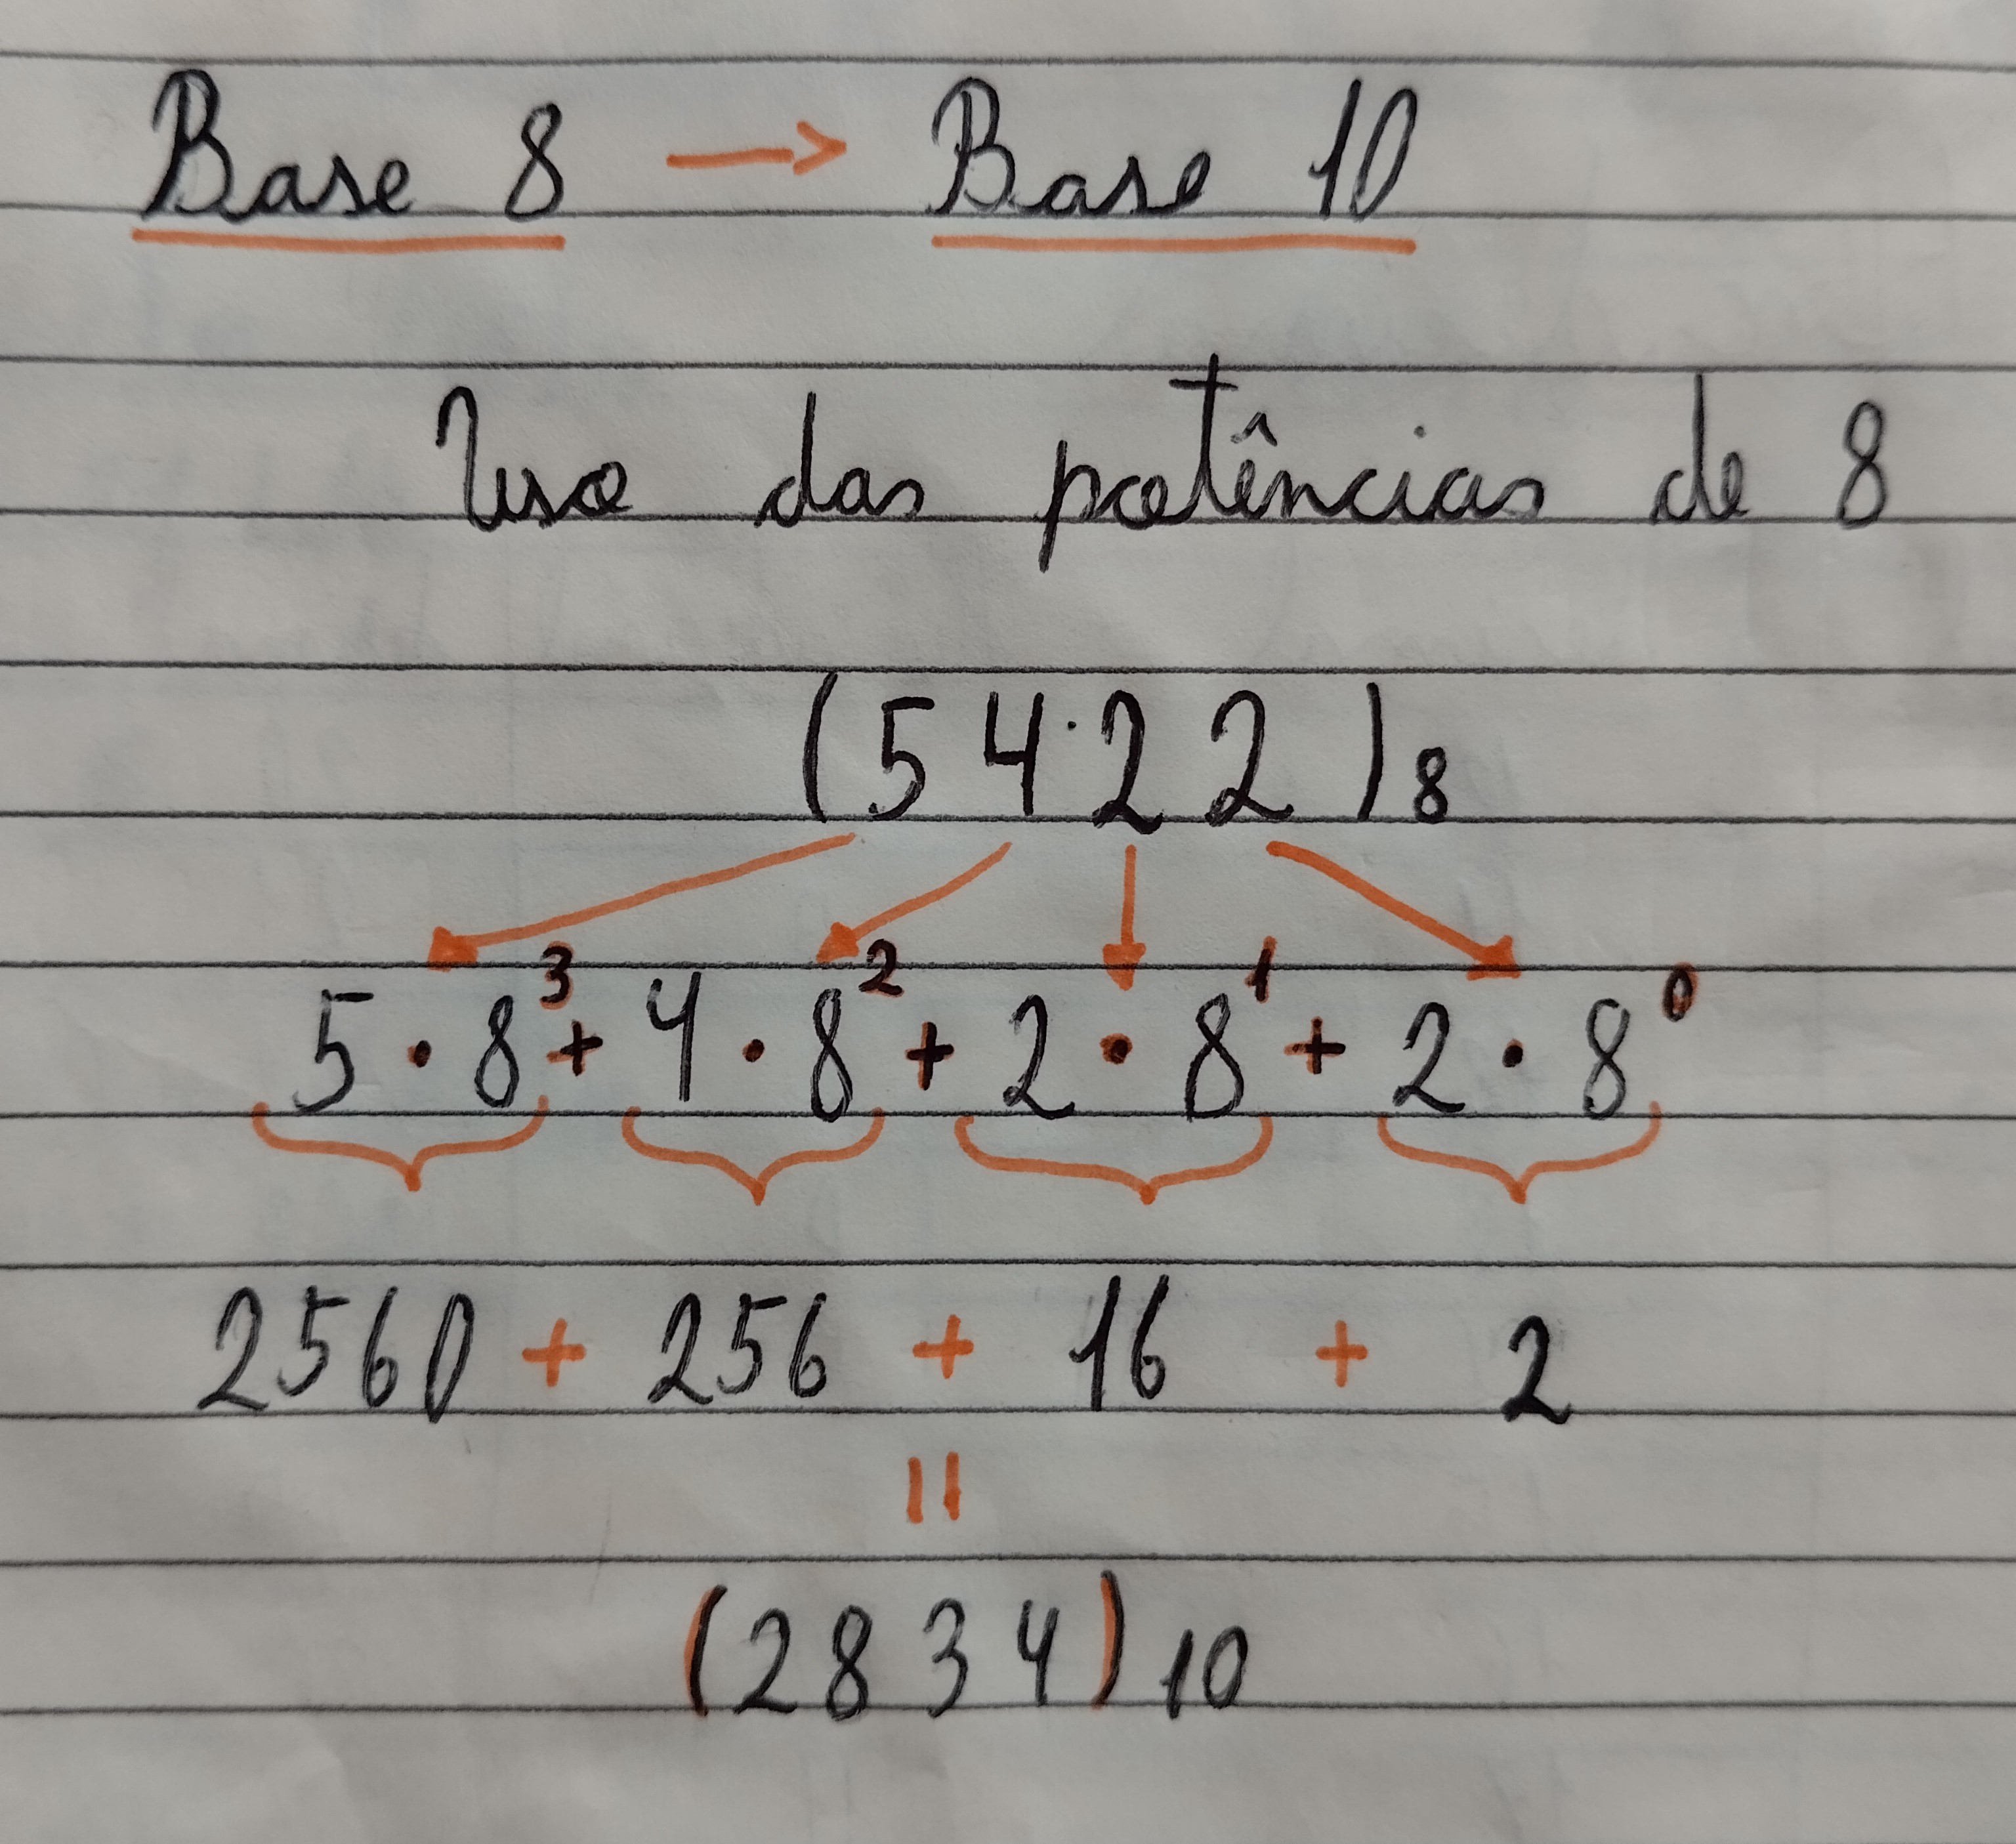 Base 8 → Base 10
Uso das potências de 8
(5422)₈
5·8³ + 4·8² + 2·8¹ + 2·8⁰
2560 + 256 + 16 + 2
=
(2834)₁₀